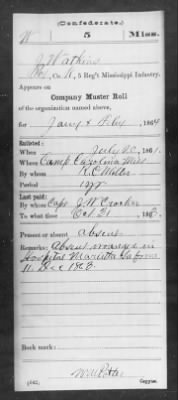 (Confederate.)
W 5 Miss.
J Watkins
Co. K, 5 Reg't Mississippi Infantry.
Appears on
Company Muster Roll
of the organization named above,
for Jany & Feby, 1864
Enlisted:
When July 20, 1861.
Where Camp Carolina Miss
By whom K.C. Miller
Period 1 yr
Last paid:
By whom Capt J.W. Crocker
To what time Oct 31, 186
Present or absent absent
Remarks: Absent in
Hospital Marietta Ga from
11 Dec 1863
Book mark:
(642)
Copyist.